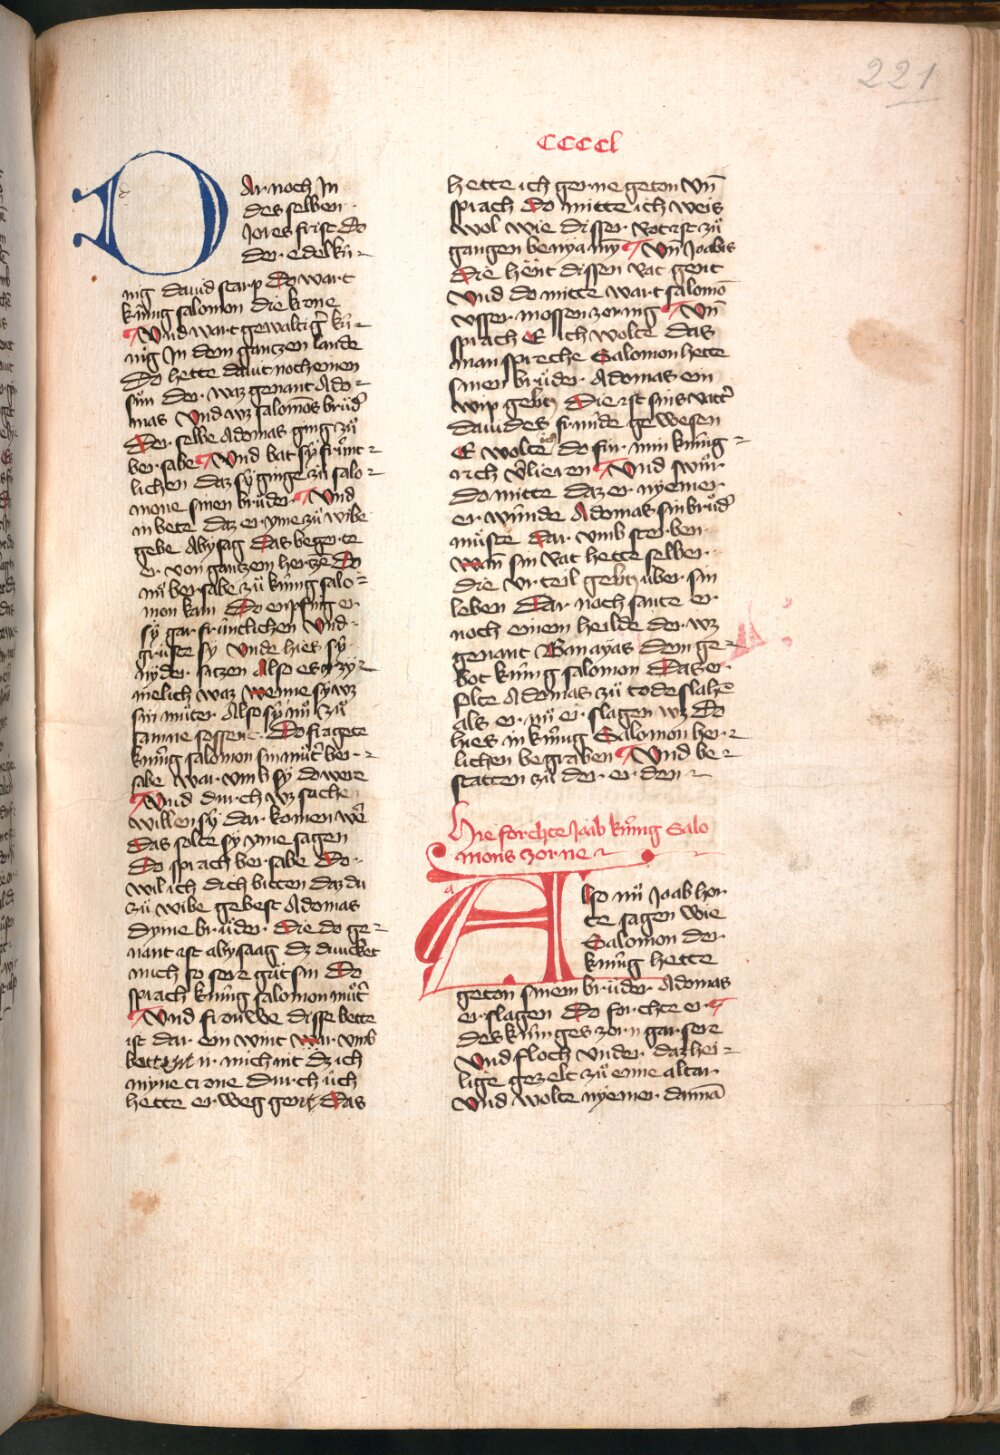 221
CCCCl
DAr noch In
des selben
Jores frist Do
der edel kú
nig dauid starp Do wart
kúnig salomon die krone
Vnd wart gewaltig̃ kú
nig In dem gantzen lande
Do hette dauit noch einen
sůn der waz genant Ado
mas Vnd wz salomõs brůd̃
Der selbe Adomas ging zů
bersabe Vnd bat sy frúnt
lichen daz sy ginge zů salo
mone sinen brůder Vnd
in bete daz er yme zů wibe
gebe Abysag Das begerte
er von gantzem hertzē Do
nů bersabe zů kúnig salo
mon kam Do enpfing er
sy gar frúntlichen Vnd
grůste sy Vnde hies sy
nyder sitzen Also es zy
melich waz wenne sy wz
sin můter Also sy nů zů
samne sossent Do fragete
kúnig salomon sin můt̃ ber
sabe War vmb sy do were
Vnd durch wz sache
willen sy dar komen wẽ
Das solte sy yme sagen
Do sprach bersabe Do
wil ich dich bitten daz du
zů wibe gebest Adomas
dyme brůder Die do ge
nant ist abysaag Dz duncket
mich so sere gůt sin Do
sprach kúnig salomon můt̃
Vnd frouwe disse bette
ist dar ein vmb
bettent ir mich nit dz ich
myne crone durch úch
hette er weg gent Das
hette ich gerne geton Vñ
sprach Do mitte ich weis
wol wie disser rot ist zů
gangen benyamy̅ Vñ Joabs
Die hent dissen rat gent
Vnd do mitte wart salomõ
vsser mossen zornig Vñ
sprach E ich wolte das
man spreche Salomon hette
sinen brůder Adomas ein
wip gebē Die ist sins vatt̃
dauides frúnde gewesen
E wolte ich do fúr min kúnig
rich v̾lieren Vnd swůr
do mitte daz er nyemer
er wúnde Adomas sin brůd̃
můste Dar vmb sterben
Wañ sin rat hette selber
die vrteil gebē über sin
leben Dar noch sante er
noch einem heilde der wz
genant Banayas Dem ge
bot kúnig salomon Das er
solte Adomas zů tode slahē
als er nů er slagen wz Do
hies in kúnig Salomon her
lichen begraben Vnd be
statten zů der erden
Hie forchte Joab kúnig Salo
mons zorne
a
Also nů Joab hor
te sagen wie
Salomon der
kúnig hette
geton sinem brůder Adomas
erslagen Do forchte er
des kúniges zorn gar sere
Vnd floch vnder daz hei
lige gezelt zů eime altar
Vnd wolte nyemer dannā